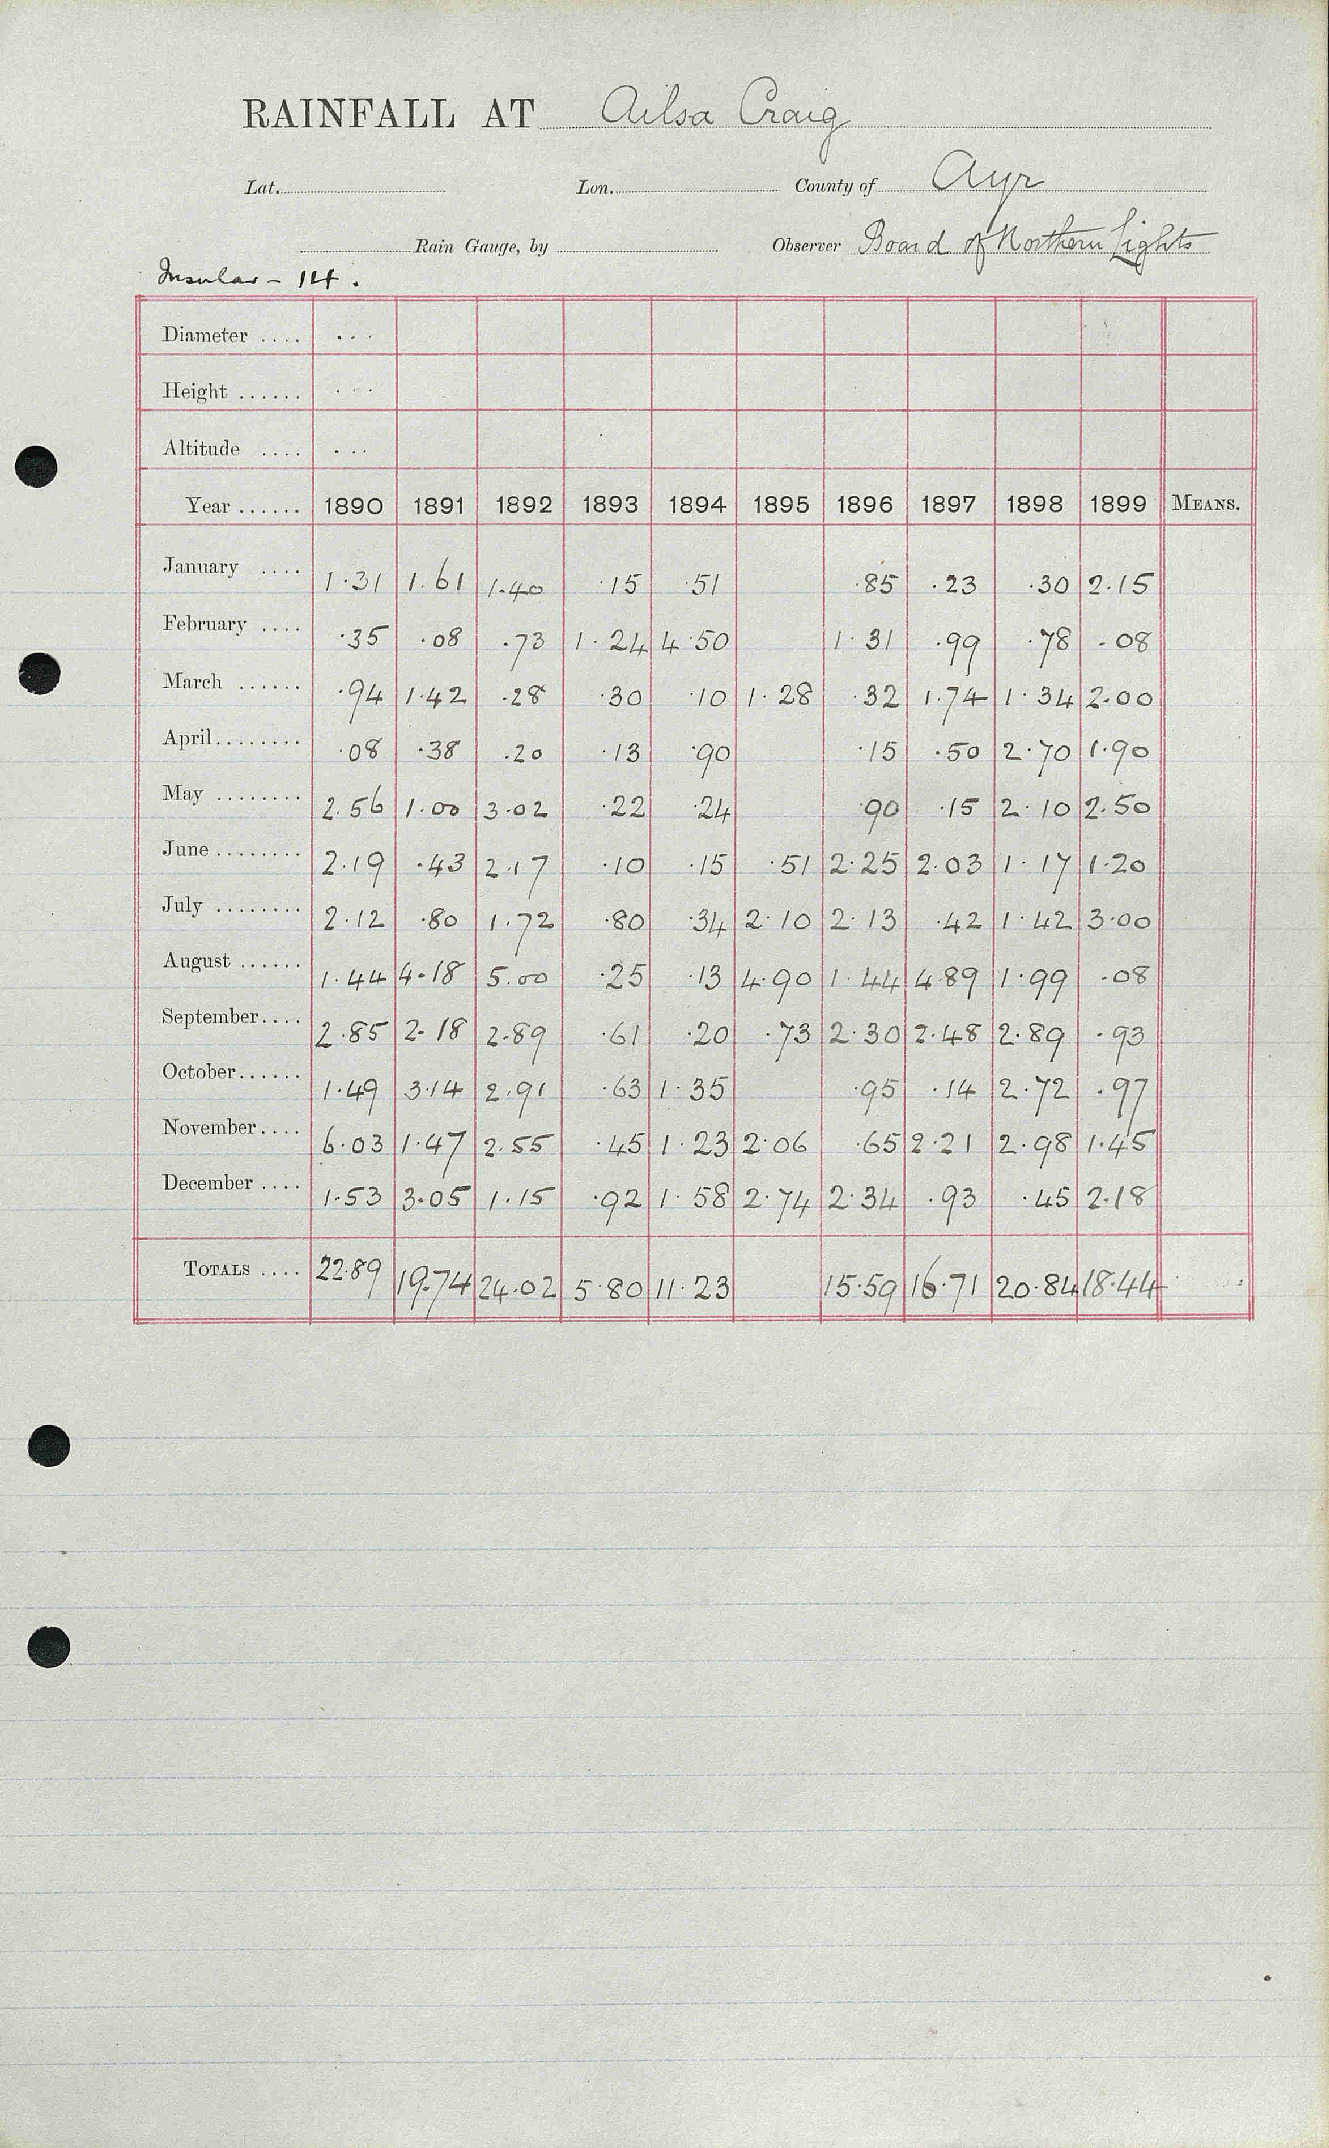 RAINFALL AT Ailsa Craig
Lat. Lon. County of Ayr
Rain Gauge, by Observer Board of Northern Lights
Insular - 14.
Diameter .... ...
Height ...... ...
Altitude .... ...
Year ...... 1890 1891 1892 1893 1894 1895 1896 1897 1898 1899 MEANS.
January .... 1.31 1.61 1.40 .15 .51 .85 .23 .30 2.15
February .... .35 .08 .73 1.24 4.50 1.31 .99 .78 .08
March ...... .94 1.42 .28 .30 .10 1.28 .32 1.74 1.34 2.00
April........ .08 .38 .20 .13 .90 .15 .50 2.70 1.90
May ........ 2.56 1.00 3.02 .22 .24 .90 .15 2.10 2.50
June ........ 2.19 .43 2.17 .10 .15 .51 2.25 2.03 1.17 1.20
July ........ 2.12 .80 1.72 .80 .34 2.10 2.13 .42 1.42 3.00
August ...... 1.44 4.18 5.00 .25 .13 4.90 1.44 4.89 1.99 .08
September.... 2.85 2.18 2.89 .61 .20 .73 2.30 2.48 2.89 .93
October...... 1.49 3.14 2.91 .63 1.35 .95 .14 2.72 .97
November.... 6.03 1.47 2.55 .45 1.23 2.06 .65 2.21 2.98 1.45
December .... 1.53 3.05 1.15 .92 1.58 2.74 2.34 .93 .45 2.18
TOTALS .... 22.89 19.74 24.02 5.80 11.23 15.59 16.71 20.84 18.44